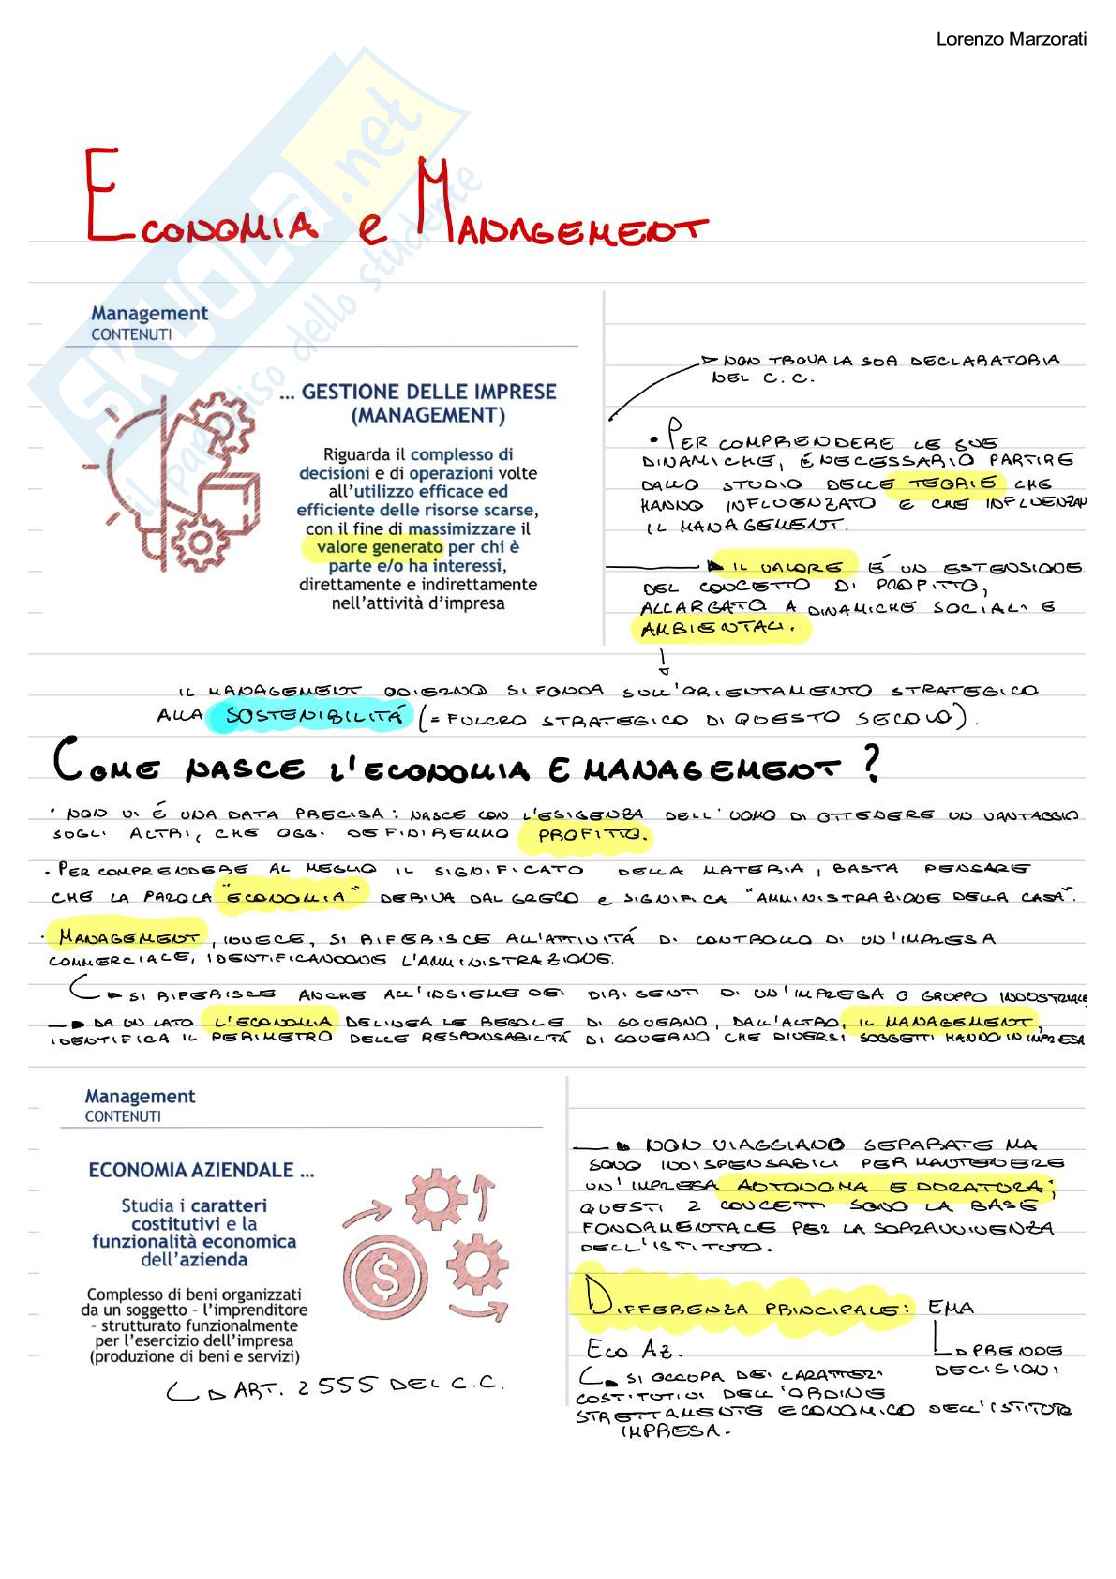 Lorenzo Marzorati
SKUOLA.net
il paradiso dello studente
ECONOMIA e MANAGEMENT
Management
CONTENUTI
... GESTIONE DELLE IMPRESE
(MANAGEMENT)
Riguarda il complesso di
decisioni e di operazioni volte
all'utilizzo efficace ed
efficiente delle risorse scarse,
con il fine di massimizzare il
valore generato per chi è
parte e/o ha interessi,
direttamente e indirettamente
nell'attività d'impresa
NON TROVA LA SUA DECLARATORIA
NEL C.C.
• PER COMPRENDERE LE SUE
DINAMICHE, É NECESSARIO PARTIRE
DALLO STUDIO DELLE TEORIE CHE
HANNO INFLUENZATO E CHE INFLUENZAN
IL MANAGEMENT.
IL VALORE É UN ESTENSIONE
DEL CONCETTO DI PROFITTO,
ALLARGATO A DINAMICHE SOCIALI E
AMBIENTALI.
IL MANAGEMENT ODIERNO SI FONDA SULL'ORIENTAMENTO STRATEGICO
ALLA SOSTENIBILITÁ (= FULCRO STRATEGICO DI QUESTO SECOLO).
COME NASCE L'ECONOMIA E MANAGEMENT?
• NON VI É UNA DATA PRECISA: NASCE CON L'ESIGENZA DELL'UOMO DI OTTENERE UN VANTAGGIO
SUGLI ALTRI, CHE OGGI DEFINIREMMO PROFITTO.
• PER COMPRENDERE AL MEGLIO IL SIGNIFICATO DELLA MATERIA, BASTA PENSARE
CHE LA PAROLA "ECONOMIA" DERIVA DAL GRECO E SIGNIFICA "AMMINISTRAZIONE DELLA CASA".
• MANAGEMENT, INVECE, SI RIFERISCE ALL'ATTIVITÁ DI CONTROLLO DI UN'IMPRESA
COMMERCIALE, IDENTIFICANDONE L'AMMINISTRAZIONE.
SI RIFERISCE ANCHE ALL'INSIEME DEI DIRIGENTI DI UN'IMPRESA O GRUPPO INDUSTRIALE
DA UN LATO L'ECONOMIA DELINEA LE REGOLE DI GOVERNO, DALL'ALTRO, IL MANAGEMENT,
IDENTIFICA IL PERIMETRO DELLE RESPONSABILITÁ DI GOVERNO CHE DIVERSI SOGGETTI HANNO IN IMPRESA
Management
CONTENUTI
ECONOMIA AZIENDALE ...
Studia i caratteri
costitutivi e la
funzionalità economica
dell'azienda
Complesso di beni organizzati
da un soggetto - l'imprenditore
- strutturato funzionalmente
per l'esercizio dell'impresa
(produzione di beni e servizi)
ART. 2555 DEL C.C.
NON VIAGGIANO SEPARATE MA
SONO INDISPENSABILI PER MANTENERE
UN'IMPRESA AUTONOMA E DURATURA;
QUESTI 2 CONCETTI SONO LA BASE
FONDAMENTALE PER LA SOPRAVVIVENZA
DELL'ISTITUTO.
DIFFERENZA PRINCIPALE: EMA
PRENDE
DECISIONI
ECO AZ.
SI OCCUPA DEI CARATTERI
COSTITUTIVI DELL'ORDINE
STRETTAMENTE ECONOMICO DELL'ISTITUTO
IMPRESA.